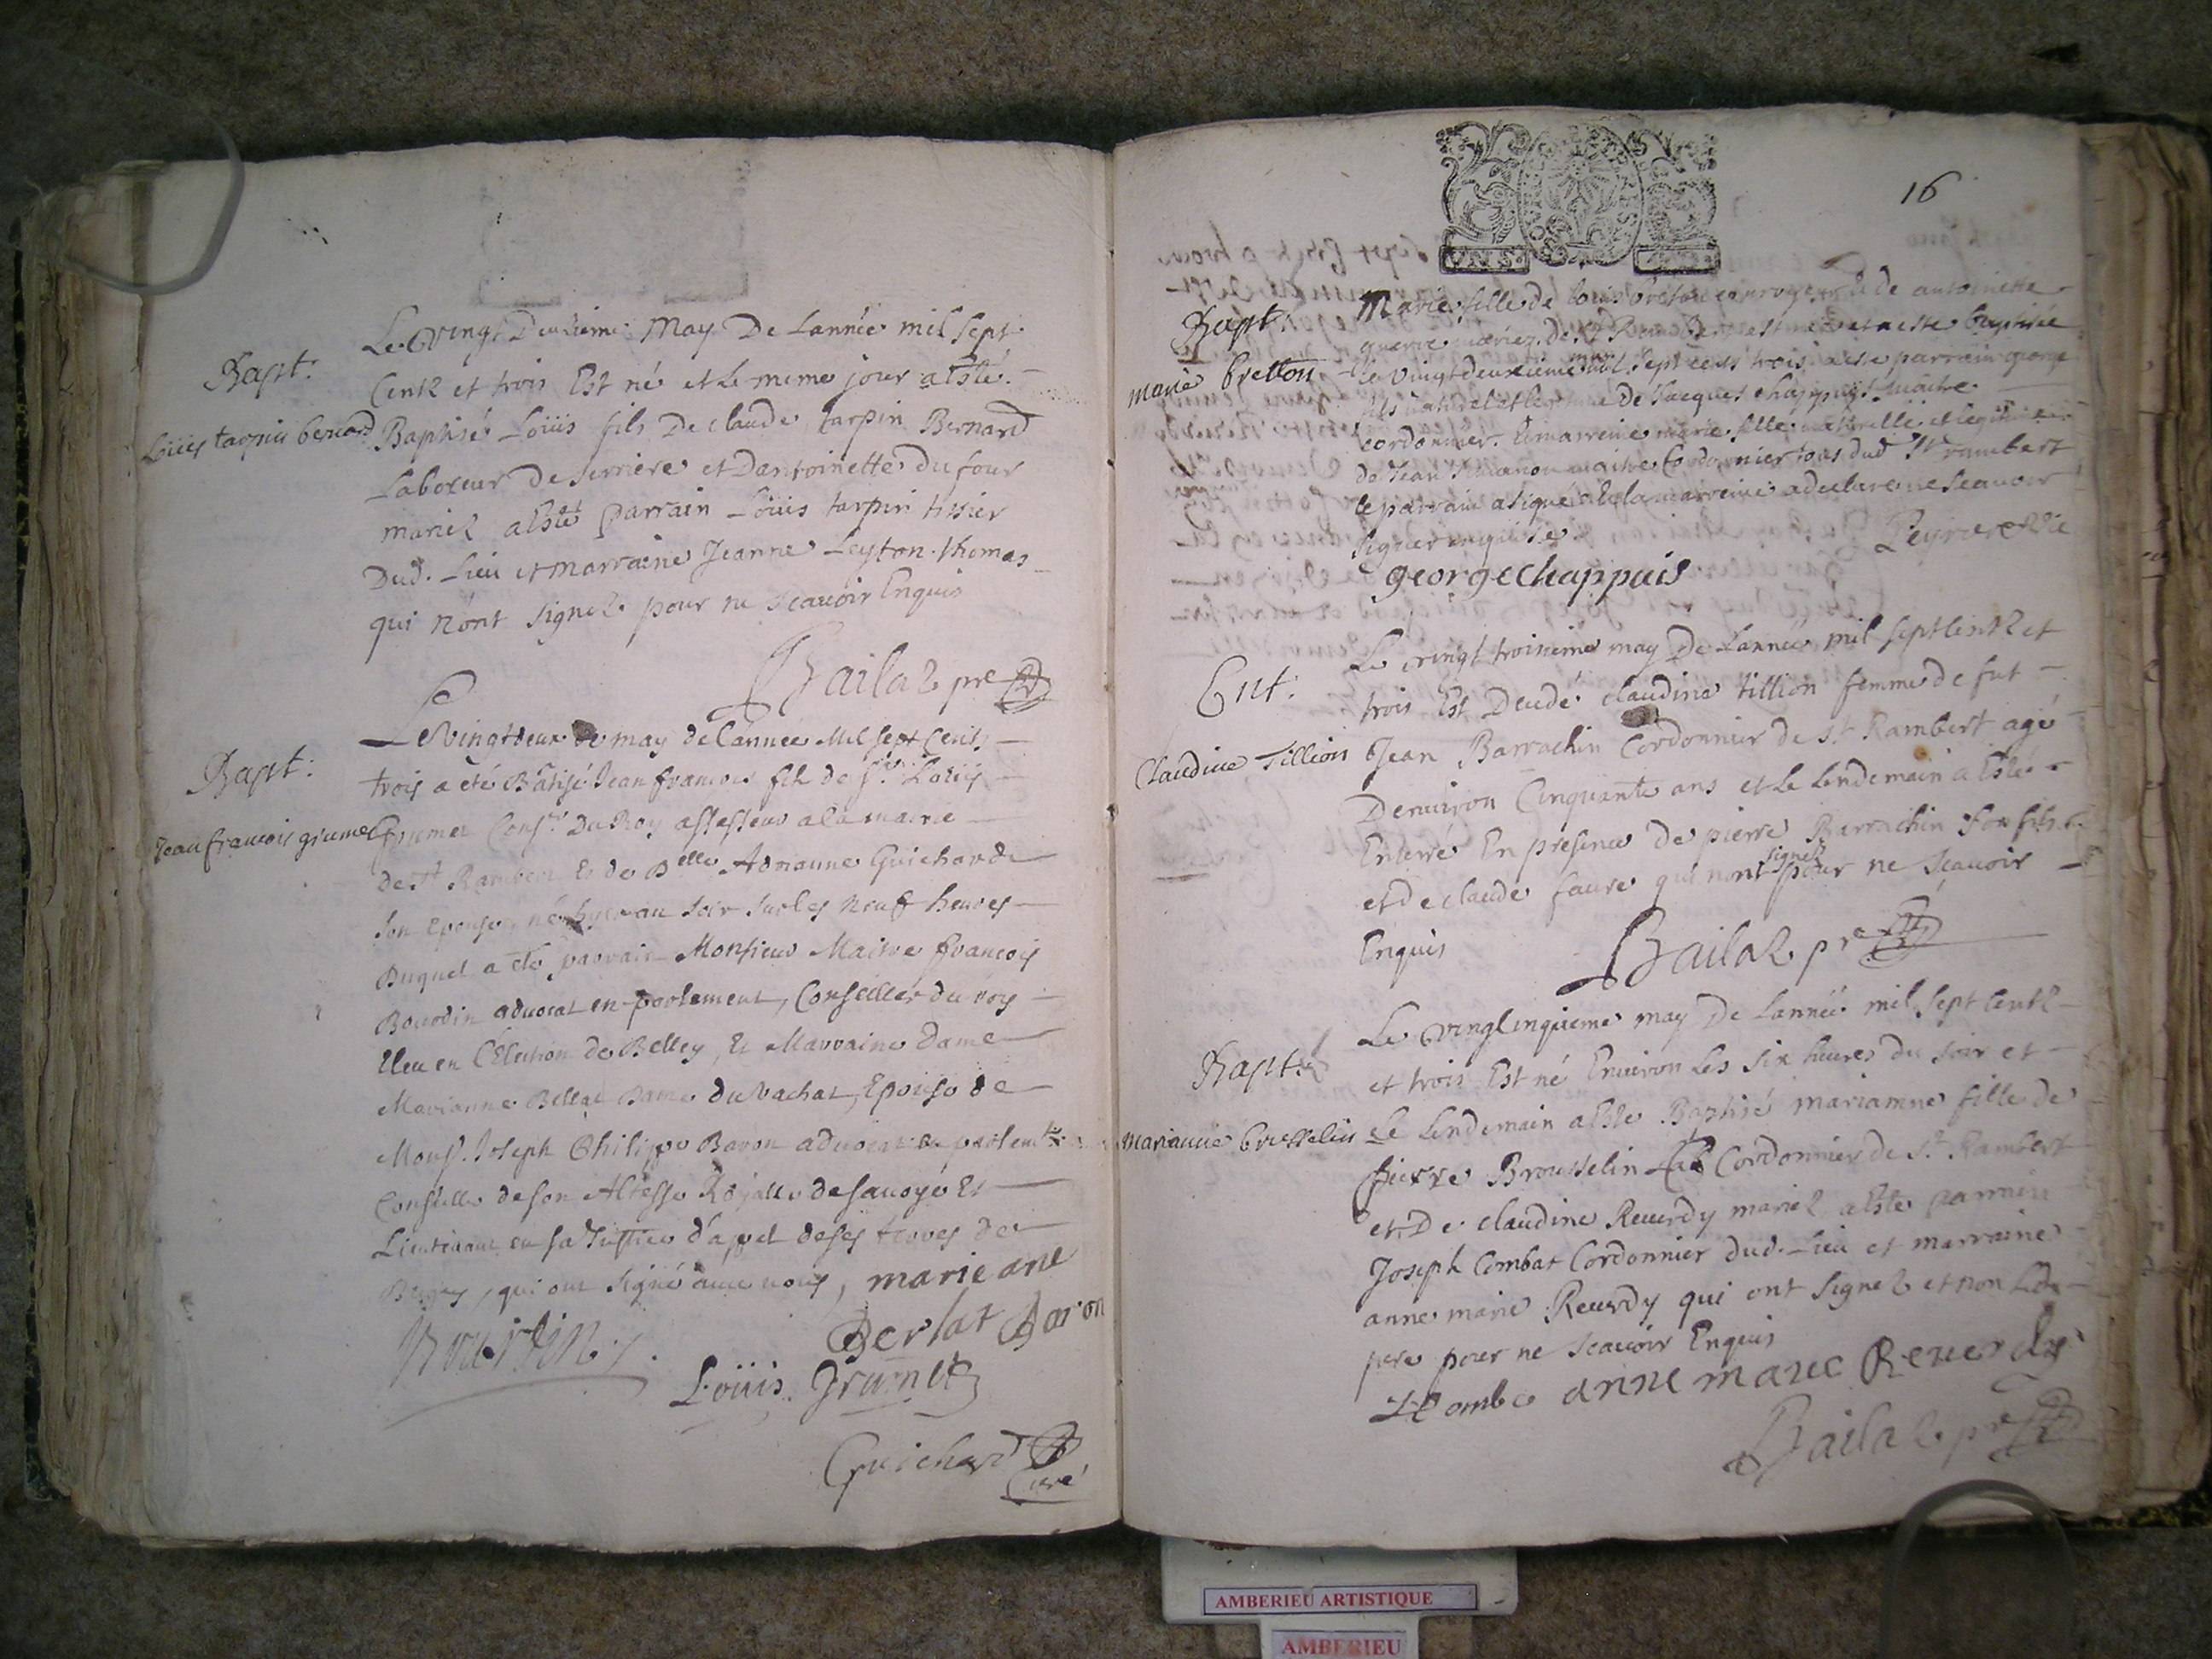 Bapt:
Loüis tarpin bernard
Le vingt Deuxieme May De Lannée mil sept
Centz et trois Est né et le meme jour a Esté
Baptisé Loüis fils De claude tarpin Bernard
Laboreur De serriere et Dantoinette du four
mariez a Esté parrain Loüis tarpin tissier
Dud. Lieu et marraine Jeanne Leyton thomas
qui n'ont signez pour ne scauoir Enquis
Bailaz pre
Bapt:
Jean francois grumet
Le Vingtdeux de may de l'année Mil sept Cents
trois a eté Batisé Jean francois fils de sr. Loüis
grumet Consr. Du Roy assesseur a la mairie
de St Rambert Et de Delle Adrianne Guichard
son Epouse, né hyer au soir sur les neuf heures
Duquel a eté parrain Monsieur Maitre françois
Bourdin aduocat en parlement, Conseiller du roy
Eleu en l'Election de Belley, Et Marraine Dame
Marianne Dame du Vachat, Epouse de
Monsr. Joseph Philippe Baron aduocat en parlemt
Conseiller de son Altesse Royalle de sauoye Et
Lieutenant en sa Justice d'appel de ses terres de
Bugey, qui ont signé auec nous, marie ane
Bourdin
Baron
Loüis Grumet
Guichard
Curé
16
Bapt:
marie bretton
Marie fille de louis breton et de antoinette
mariez de St est née et a este baptisée
le vingt deuxieme may mil sept cens trois a esté parrain george
fils naturel et de Jacques chappuis maitre
cordonnier. Et marreine marie fille naturelle et legitime
de Jean maitre Cordonnier tous dud St rambert
le parrain a signé Et la marreine a declaré ne scauoir
signer enquise
george chappuis
Ent:
Claudine Tillion
Le vingt troisieme may De Lannée mil sept Centz et
trois Est Decedé claudine tillion femme de fut
Jean Barrachin Cordonnier de St Rambert agé
Denuiron Cinquante ans et le lendemain a Esté
Enterré En presence De pierre Barrachin son fils
et De claude faure qui nont signez pour ne scauoir
Enquis
Bailaz pre
Bapt:
marianne brusselin
Le vinglinquieme may De Lannée mil sept Centz
et trois Est né Enuiron les six heures du soir et
le lendemain a Esté Baptisé mariamne fille de
pierre Brousselin Cordonnier de St Rambert
et De claudine Reuerdy mariez a Este parrain
Joseph Combat Cordonnier dud. Lieu et marraine
anne marie Reuerdy qui ont signez et non Led
pere pour ne scauoir Enquis
anne marie Reuerdy
Bailaz pre
AMBERIEU ARTISTIQUE
AMBERIEU